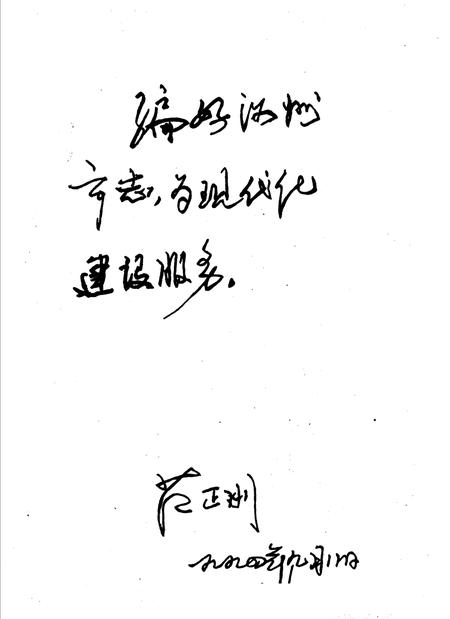 编好州
市志,为现代化
建设服务。
范正
一九九四年九月日